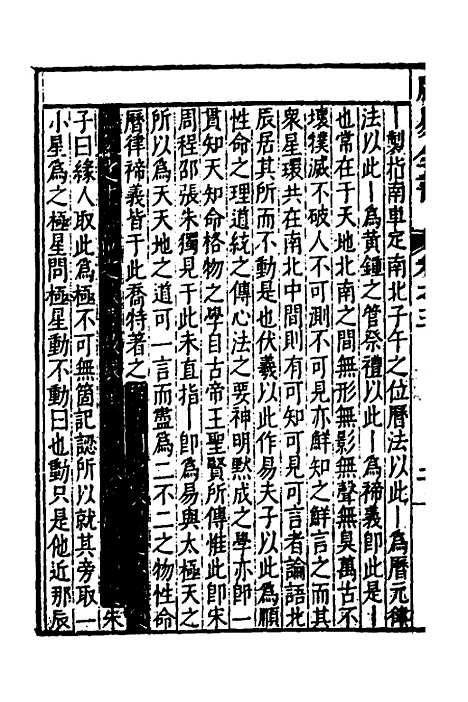 丨製指南車定南北子午之位曆法以此丨為曆元律
法以此丨為黃鍾之管祭禮以此丨為禘義即此是丨
也常在于天地北南之間無形無影無聲無臭萬古不
壞撲滅不破人不可測不可見亦鮮知之鮮言之而其
眾星環共在南北中間則有可知可見可言者論語北
辰居其所而不動是也伏羲以此作易夫子以此為順
性命之理道統之傳心法之要神明黙成之學亦即一
貫知天知命格物之學自古帝王聖賢所傳惟此即宋
周程邵張朱獨見于此未直指丨即為易與太極天之
所以為天天地之道可一言而盡為二不二之物性命
曆律禘義皆于此喬特著之
朱
子曰緣人取此為極不可無箇記認所以就其旁取一
小星為之極星問極星動不動曰也動只是他近那辰